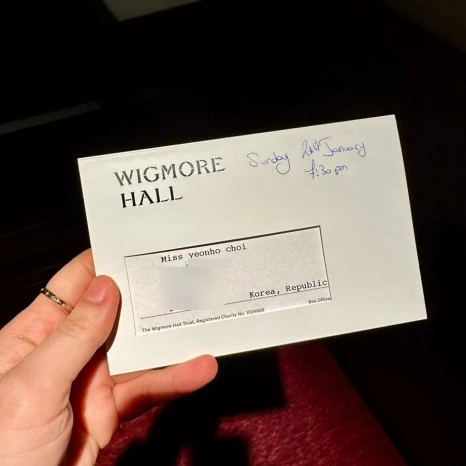 WIGMORE
HALL
Sunday 21st January
7:30pm
Miss yeonho choi
Korea, Republic
Box Office
The Wigmore Hall Trust, Registered Charity No. 1024838